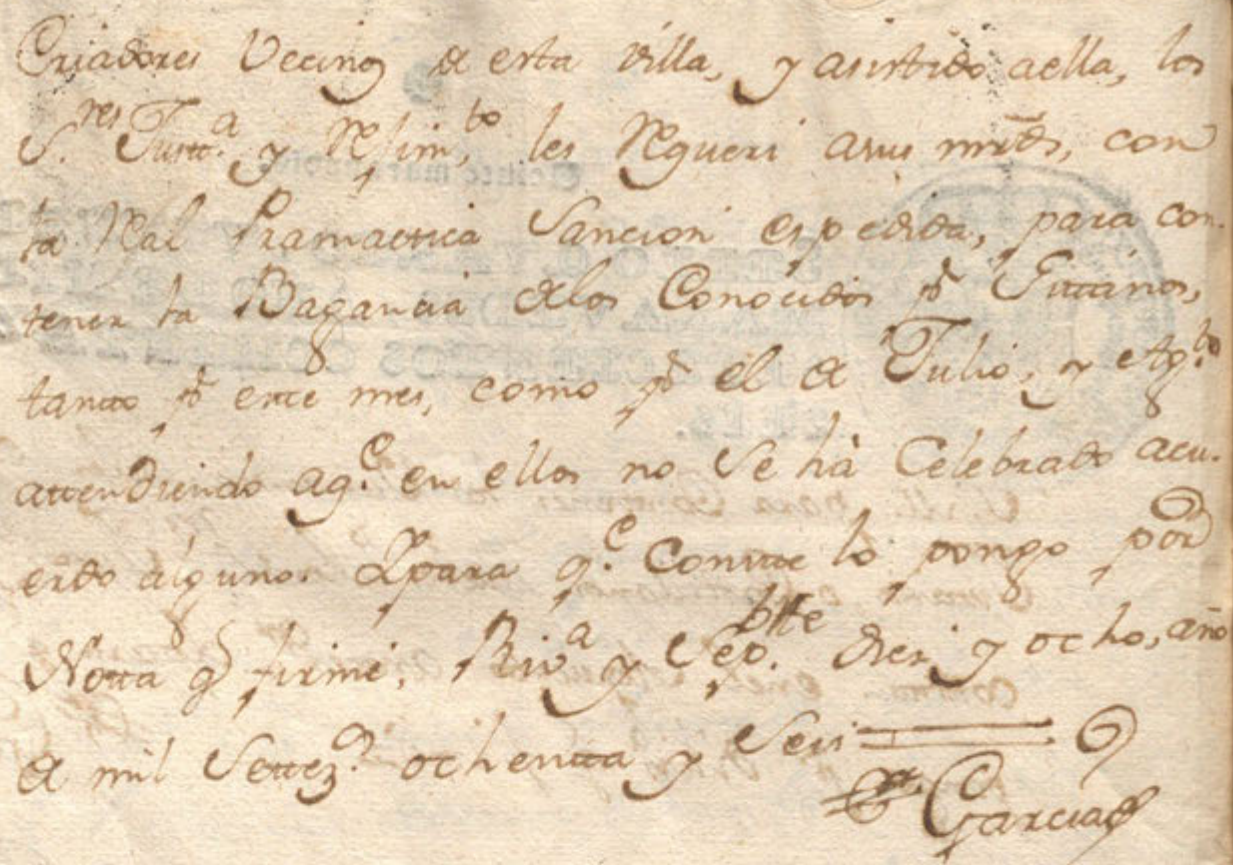 Criadores Vecinos de esta villa, y asistido a ella, los
S.res Justt.a y Rejim.to, les Requeri a sus mrds, con
la Real Pramactica Sancion espedida, para con-
tener la Bagancia de los Conocidos pr Gittanos,
tantto pr estte mes, como pr el de Julio, y Ag.to
attendiendo a q.e en ellos no se há Celebrado acu-
erdo alguno. Y para q.e Constte lo pongo por
Notta q firmé, Riv.a y Sep.btte diez y ocho, año
de mil Settez.s ochentta y Seis
Garcia